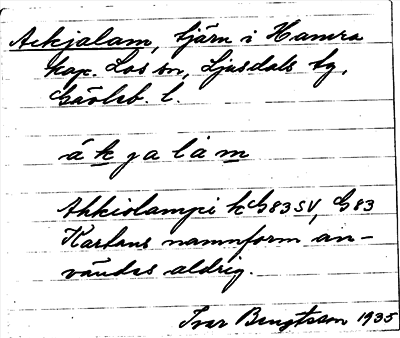 Ackjalam, tjärn i Hamra
kap. Los sn, Ljusdals tg,
Gävleb. l.
ákjalám
Ahkiolampi k G83SV, G83
Kartans namnform an-
vändes aldrig.
Ivar Bengtsson 1935